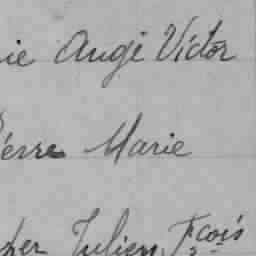 ie Ange Victor
ierre Marie
her Julien Fçois